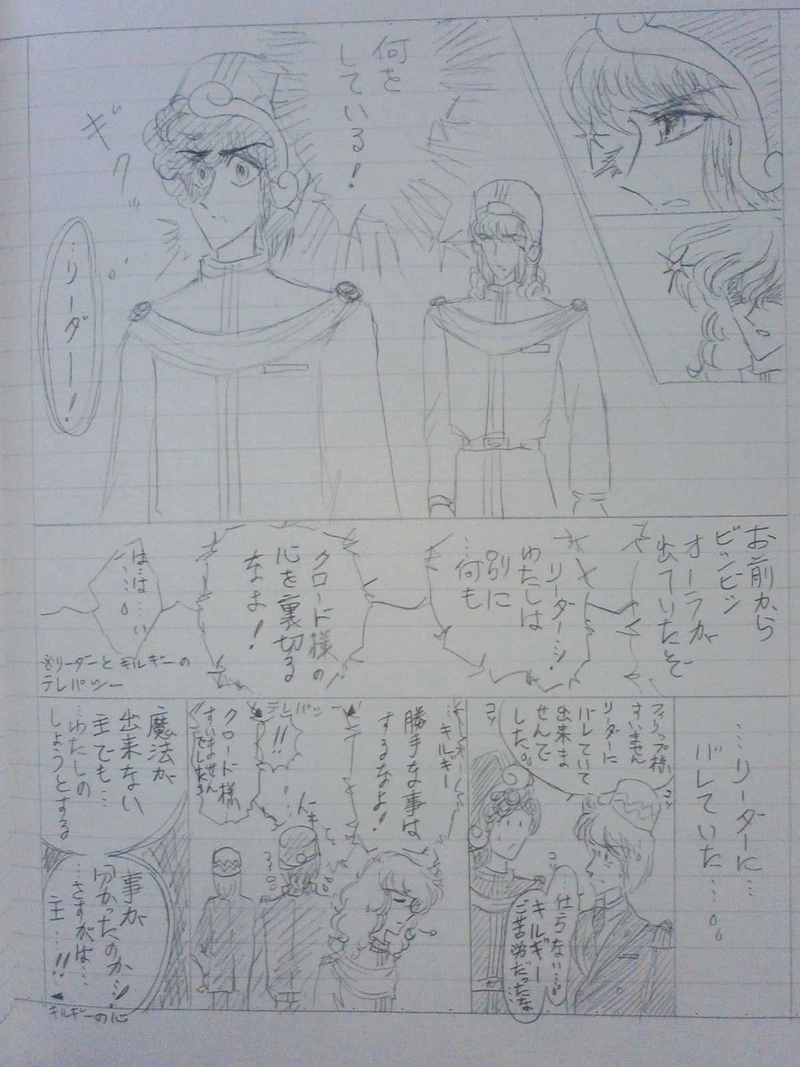 何を
している！
ギクッ
…リーダー！
お前から
ビンビン
オーラが
出ていたぞ
リーダーッ！
わたしは
別に
…何も
クロード様の
心を裏切る
なよ！
は…は…い
……。
※リーダーとキルギーの
テレパシー
…リーダーに…
バレていた……。。
フィリップ様
すいません
リーダーに
バレていて
出来ま
せんで
した。。
コソ
コソ
コソ
仕方ない…。
キルギー
ご苦労だったな
…キルギー
勝手な事は
するなよ！
テレパシー
！！
…。
ドキ
クロード様、
すいません
でした
魔法が
出来ない
主でも…
…わたしの
しようとする
事が
分かったのかッ！
…さすがは…
主…！！
キルギーの心